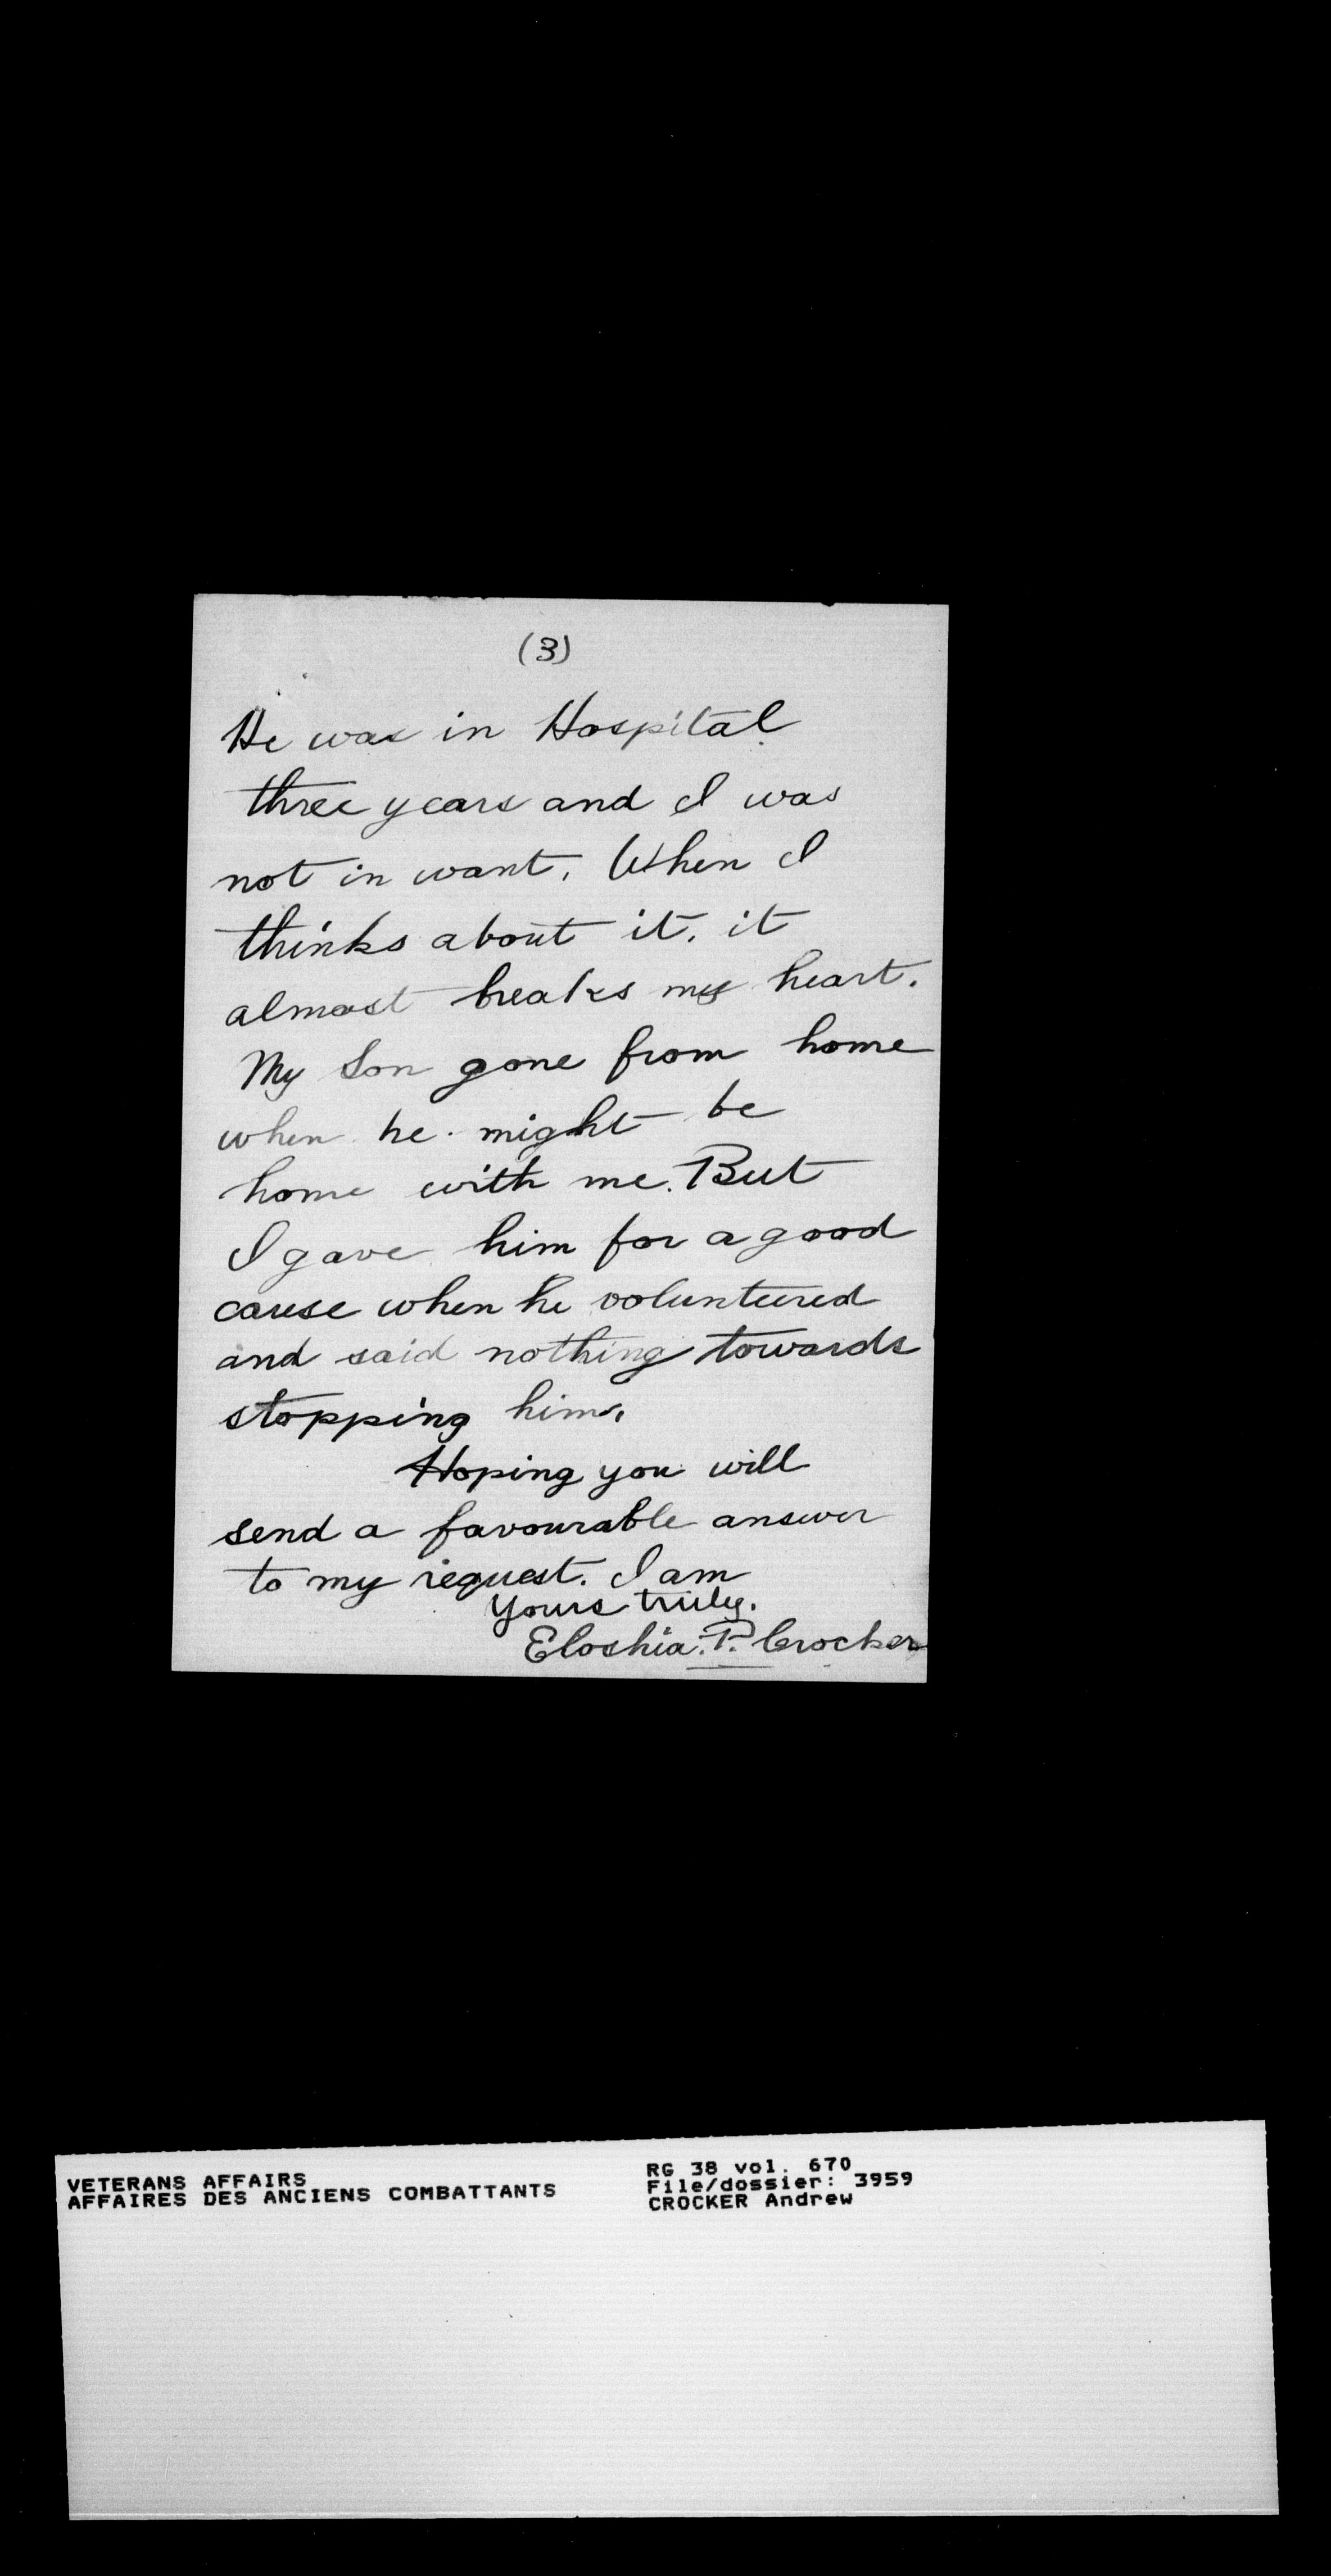 (3)
He was in Hospital
three years and I was
not in want. When I
thinks about it. it
almost breaks my heart.
My Son gone from home
when he might be
home with me. But
I gave him for a good
cause when he volunteered
and said nothing towards
stopping him.
Hoping you will
send a favourable answer
to my request. I am
Yours truly.
Eloshia. P. Crocker
VETERANS AFFAIRS
AFFAIRES DES ANCIENS COMBATTANTS
RG 38 vol. 670
File/dossier: 3959
CROCKER Andrew